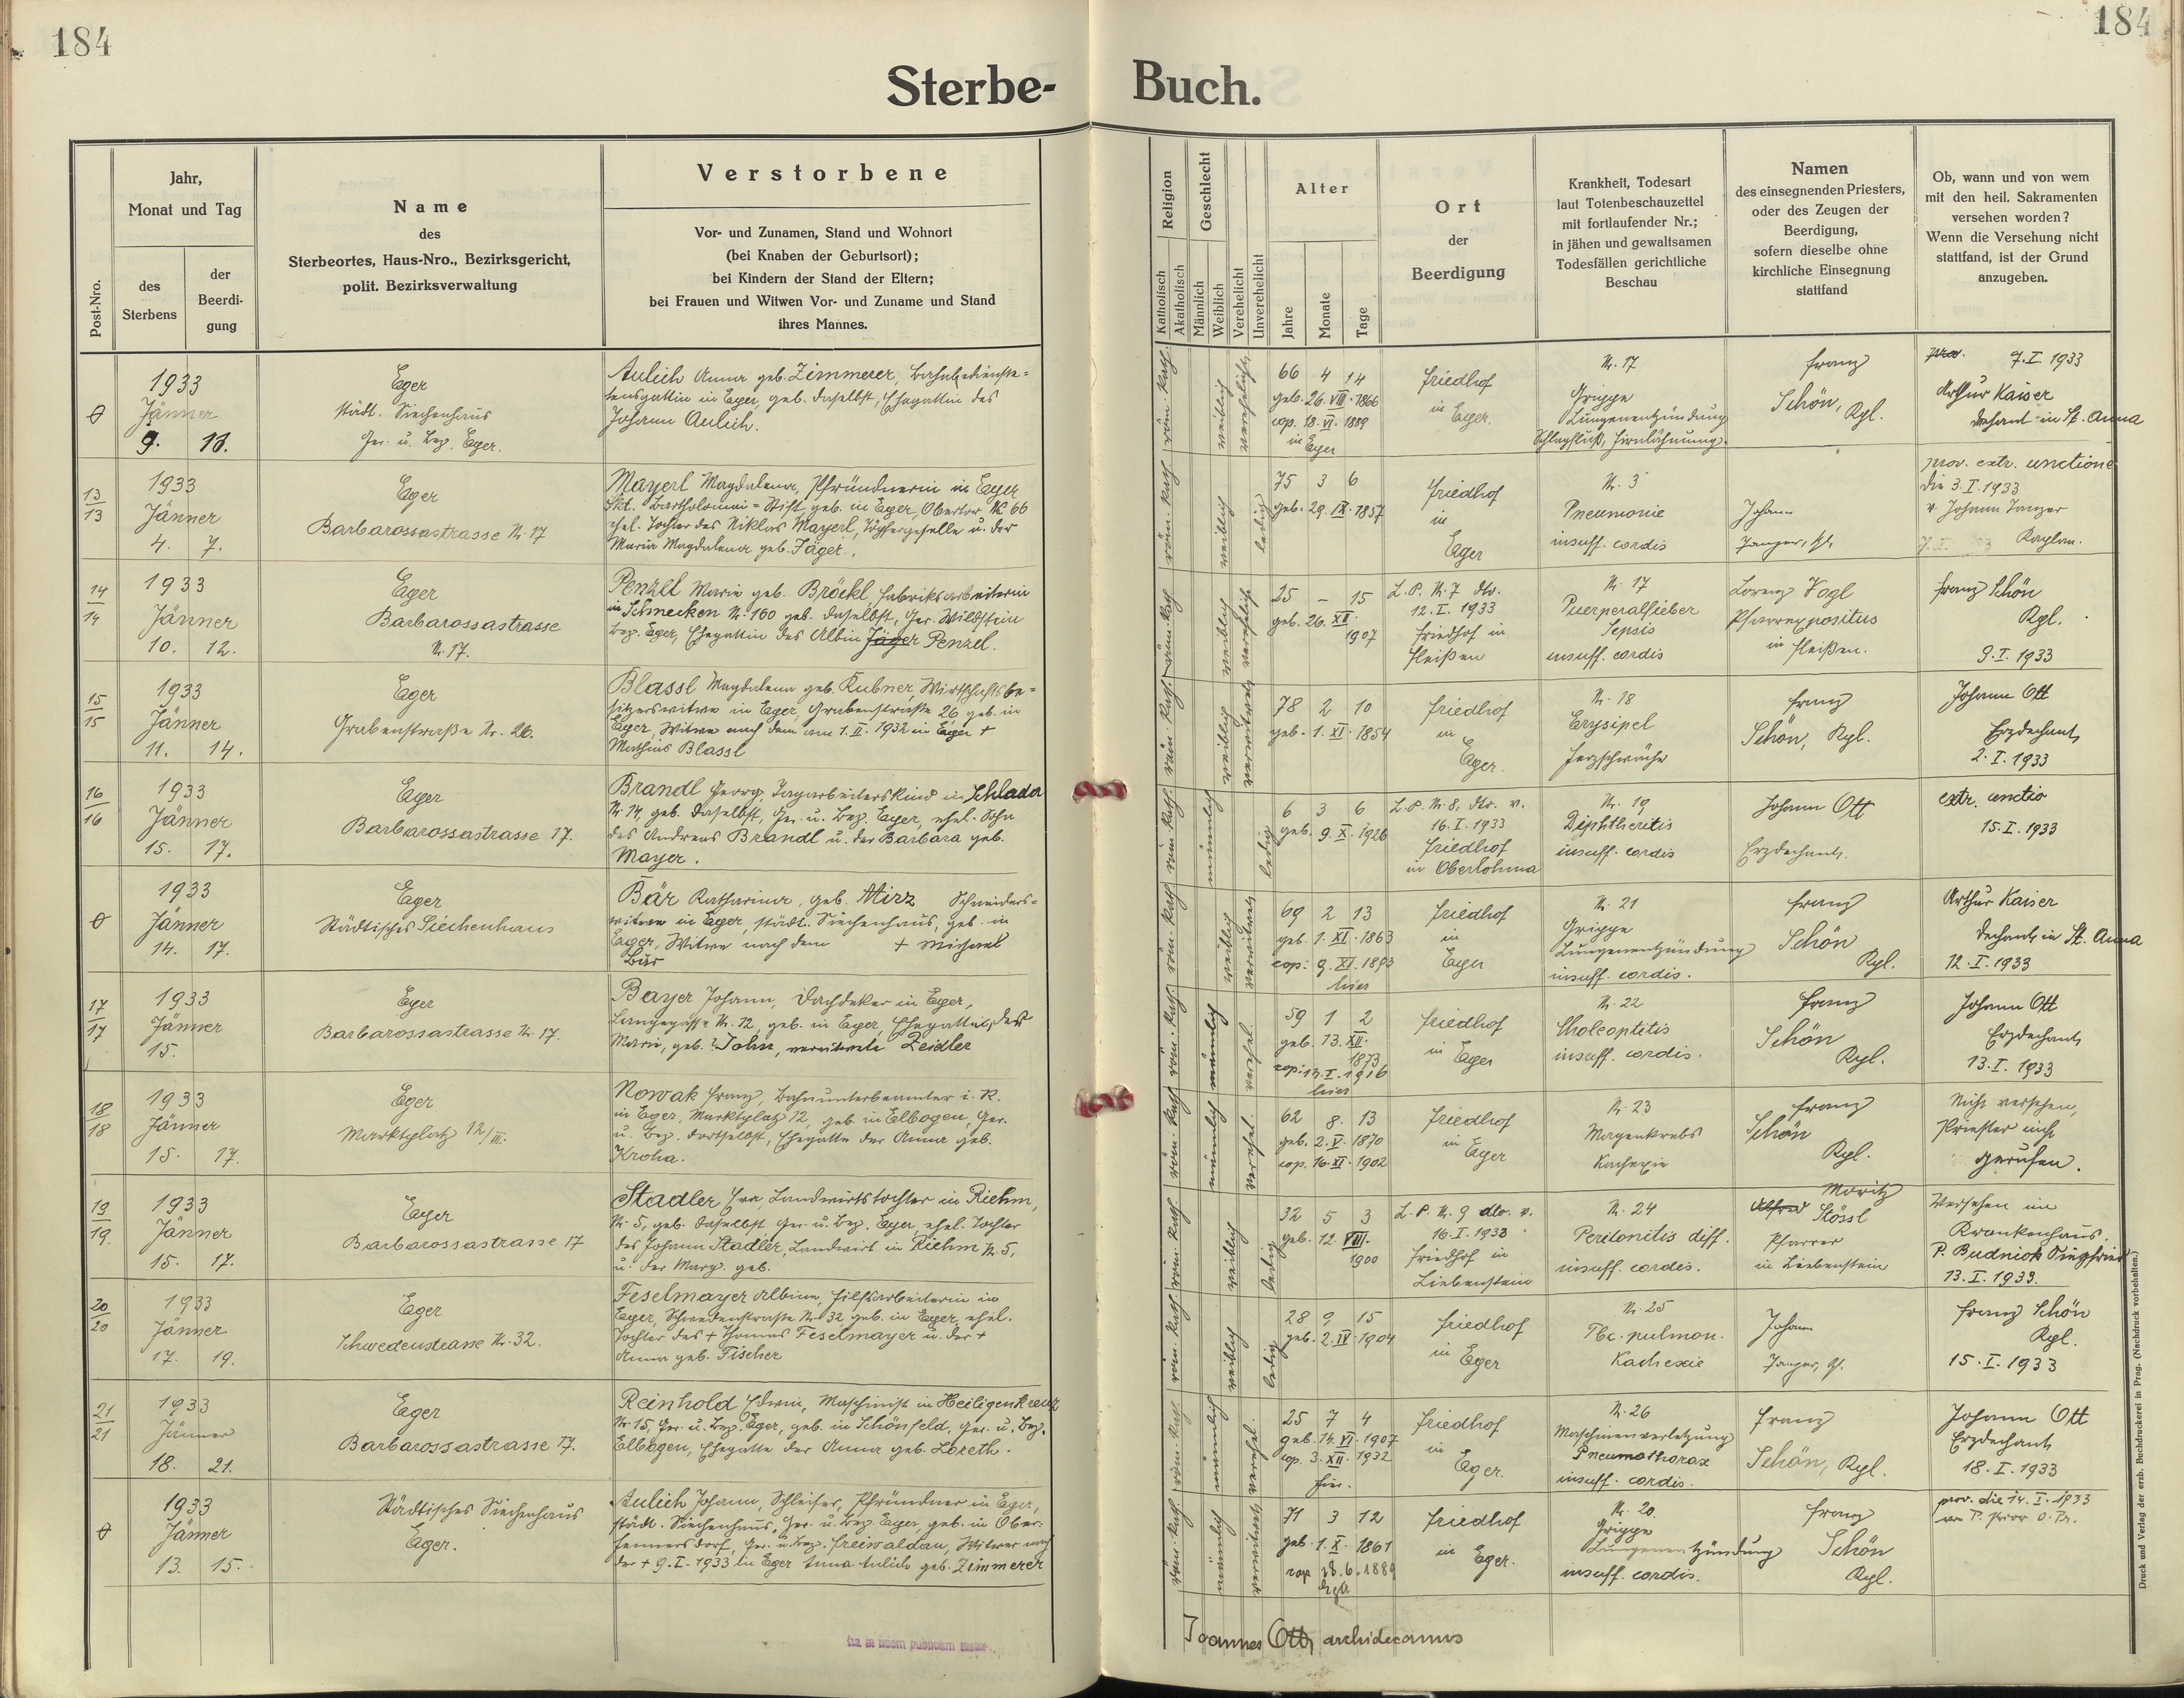 184
184
Sterbe-
Buch.
Post-Nro.
Jahr,
Monat und Tag
des
Sterbens
der
Beerdi-
gung
Name
des
Sterbeortes, Haus-Nro., Bezirksgericht,
polit. Bezirksverwaltung
Verstorbene
Vor- und Zunamen, Stand und Wohnort
(bei Knaben der Geburtsort);
bei Kindern der Stand der Eltern;
bei Frauen und Witwen Vor- und Zuname und Stand
ihres Mannes.
Religion
Katholisch
Akatholisch
Geschlecht
Männlich
Weiblich
Verehelicht
Unverehelicht
Alter
Jahre
Monate
Tage
Ort
der
Beerdigung
Krankheit, Todesart
laut Totenbeschauzettel
mit fortlaufender Nr.;
in jähen und gewaltsamen
Todesfällen gerichtliche
Beschau
Namen
des einsegnenden Priesters,
oder des Zeugen der
Beerdigung,
sofern dieselbe ohne
kirchliche Einsegnung
stattfand
Ob, wann und von wem
mit den heil. Sakramenten
versehen worden?
Wenn die Versehung nicht
stattfand, ist der Grund
anzugeben.
1933
Jänner
9.
Eger
städt. Siechenhaus
Ger. u. Bez. Eger.
Aulich Anna geb. Zimmerer, Bahnbedienste-
tensgattin in Eger, geb. daselbst, Ehegattin des
Johann Aulich.
röm. kath.
weiblich
verehelicht
66 4 14
geb. 26. VIII. 1866
cop. 18. VI. 1889
in Eger
Friedhof
in Eger.
N. 17
Grippe
Lungenentzündung
Schlagfluß, Hirnlähmung.
Franz
Schön, Kpl.
7. I. 1933
Arthur Kaiser
Dechant in St. Anna
13
13
1933
Jänner
4. 7.
Eger
Barbarossastrasse N. 17
Mayerl Magdalena, Pfründnerin in Eger
Skt. Bartholomäi-Stift geb. in Eger, Obertor N 66
ehel. Tochter des Niklas Mayerl, Töpfergeselle u. der
Maria Magdalena geb. Jäger.
röm. kath.
weiblich
ledig
75 3 6
geb. 29. IX. 1857
Friedhof
in
Eger
N. 3
Pneumonie
insuff. cordis
Johann
prov. extr. unctione
die 3. I. 1933
v. Johann
Kaplan.
14
14
1933
Jänner
10. 12.
Eger
Barbarossastrasse
N. 17.
Penzel Marie geb. Bröckl Fabriksarbeiterin
in Schnecken N. 160 geb. daselbst, Ger. Wildstein
Bez. Eger, Ehegattin des Albin Jäger Penzel.
röm. kath.
weiblich
verehelicht
25 – 15
geb. 26. XII.
1907
L. P. N. 7 dto.
12. I. 1933
Friedhof in
Fleißen
N. 17
Puerperalfieber
Sepsis
insuff. cordis
Lorenz Vogl
Pfarrexpositus
in Fleißen.
Franz Schön
Kpl.
9. I. 1933
15
15
1933
Jänner
11. 14.
Eger
Grabenstraße Nr. 26.
Blassl Magdalena geb. Kubner, Wirtschaftsbe-
sitzerswitwe in Eger, Grabenstraße 26 geb. in
Eger, Witwe nach dem am 1. II. 1932 in Eger +
Mathias Blassl
röm. kath.
weiblich
verwitwet
78 2 10
geb. 1. XI. 1854
Friedhof
in
Eger.
N. 18
Erysipel
Herzschwäche
Franz
Schön, Kpl.
Johann Ott
Erzdechant
2. I. 1933
16
16
1933
Jänner
15. 17.
Eger
Barbarossastrasse 17.
Brandl Georg, Tagarbeiterskind in Schlada
N. 14, geb. daselbst, Ger. u. Bez. Eger, ehel. Sohn
des Andreas Brandl u. der Barbara geb.
Mayer.
röm. kath.
männlich
ledig
6 3 6
geb. 9. X. 1926
L. P. N. 8, dto. v.
16. I. 1933
Friedhof
in Oberlohma
N. 19
Diphtheritis
insuff. cordis
Johann Ott
Erzdechant.
extr. unctio
15. I. 1933
1933
Jänner
14. 17.
Eger
Städtisches Siechenhaus
Bär Katharina, geb. Mirz Schneiders-
witwe in Eger, städt. Siechenhaus, geb. in
Eger, Witwe nach dem + Michael
Bär
röm. kath.
weiblich
verwitwet
69 2 13
geb. 1. XI. 1863
cop: 9. XI. 1893
hier
Friedhof
in
Eger
N. 21
Grippe
Lungenentzündung
insuff. cordis.
Franz
Schön
Kpl.
Arthur Kaiser
Dechant in St. Anna
12. I. 1933
17
17
1933
Jänner
15.
Eger
Barbarossastrasse N. 17.
Bayer Johann, Dachdeker in Eger,
Langegasse N. 12, geb. in Eger, Ehegatte der
Marie, geb. John, verwitwete Zeidler
röm. kath.
männlich
verehel.
59 1 2
geb. 13. XII.
1873
I. 1916
hier
Friedhof
in Eger
N. 22
insuff. cordis.
Franz
Schön
Kpl.
Johann Ott
Erzdechant
13. I. 1933
18
18
1933
Jänner
15. 17.
Eger
Marktplatz 12/III.
Nowak Franz, Bahnunterbeamter i. R.
in Eger, Marktplatz 12, geb. in Elbogen, Ger.
u. Bez. dortselbst, Ehegatte der Anna geb.
Kroha.
röm. kath.
männlich
verehel.
62 8. 13
geb. 2. V. 1870
cop. 16. XI. 1902
Friedhof
in Eger
N. 23
Magenkrebs
Kachexie
Franz
Schön
Kpl.
Nicht versehen,
Priester nicht
gerufen.
19
19.
1933
Jänner
15. 17.
Eger
Barbarossastrasse 17
Stadler Eva, Landwirtstochter in Riehm,
N. 5, geb. daselbst Ger. u. Bez. Eger, ehel. Tochter
des Johann Stadler, Landwirt in Riehm N. 5,
u. der Marg. geb.
röm. kath.
weiblich
ledig
32 5 3
geb. 12. VIII.
1900
L. P. N. 9 dto. v.
16. I. 1933
Friedhof in
Liebenstein
N. 24
Peritonitis diff.
insuff. cordis.
Moritz
Alfred Stössl
Pfarrer
in Liebenstein
Versehen im
Krankenhaus.
P. Budniok Siegfried
13. I. 1933.
20
20
1933
Jänner
17. 19.
Eger
Schwedenstrasse Nr. 32.
Feselmayer Albine, Hilfsarbeiterin in
Eger, Schwedenstraße N. 32 geb. in Eger, ehel.
Tochter des + Thomas Feselmayer u. der +
Anna geb. Fischer
röm. kath.
weiblich
ledig
28 9 15
geb. 2. IV. 1904
Friedhof
in Eger
N. 25
Tbc. pulmon.
Kachexie
Johann
Franz Schön
Kpl.
15. I. 1933
21
21
1933
Jänner
18. 21.
Eger
Barbarossastrasse 17.
Reinhold Edwin, Maschinist in Heiligenkreuz
Nr. 15, Ger. u. Bez. Eger, geb. in Schönfeld, Ger. u. Bez.
Elbogen, Ehegatte der Anna geb. Loreth.
röm. kath.
männlich
verehel.
25 7 4
geb. 14. VI. 1907
cop. 3. XII. 1932
hier.
Friedhof
in
Eger.
N. 26
Maschinenverletzung
Pneumothorax
insuff. cordis.
Franz
Schön, Kpl.
Johann Ott
Erzdechant
18. I. 1933
1933
Jänner
13. 15.
Städtisches Siechenhaus
Eger.
Aulich Johann, Schleifer, Pfründner in Eger,
städt. Siechenhaus, Ger. u. Bez. Eger, geb. in Ober-
Ger. u. Bez. Freiwaldau, Witwer nach
der + 9. I. 1933 in Eger Anna Aulich geb. Zimmerer
röm. kath.
männlich
verwitwet
71 3 12
geb. 1. X. 1861
cop 18. 6. 1889
Friedhof
in Eger.
N. 20.
Grippe
Lungenentzündung
insuff. cordis.
Franz
Schön
Kpl.
prov. die 14. I. 1933
Joannes Ott archidecanus
Druck und Verlag der erzb. Buchdruckerei in Prag. (Nachdruck vorbehalten.)